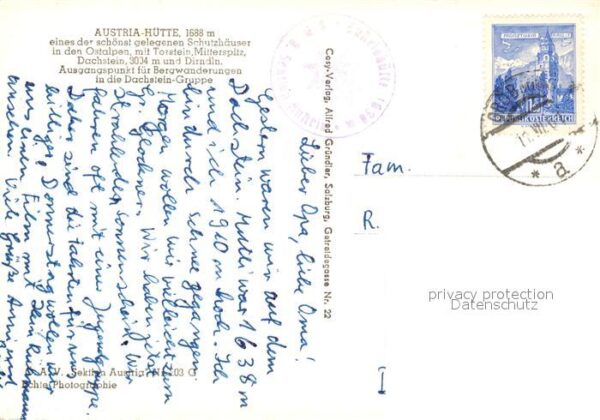 AUSTRIA-HÜTTE, 1688 m
eines der schönst gelegenen Schutzhäuser
in den Ostalpen, mit Torstein, Mitterspitz,
Dachstein, 3034 m und Dirndln.
Ausgangspunkt für Bergwanderungen
in die Dachstein-Gruppe
Lieber Opa, liebe Oma!
Gestern waren wir auf dem
Dachstein. Mutti war 1638 m
und ich 1910 m hoch. Ich
bin durch Schnee gegangen
Morgen wollen wir vielleicht zum
Wir haben jetzt
strahlenden Sonnenschein. Wir
fahren oft mit einer Jugendgruppe.
Daher sind die Fahrten für uns
billiger. Donnerstag wollen wir
uns einen Film mit Heinz Rühmann
ansehen. Viele Grüße
Cosy-Verlag, Alfred Gründler, Salzburg, Getreidegasse Nr. 22
Ö. A. V. Sektion Austria Nr. 203 G
Echte Photographie
REPUBLIK ÖSTERREICH
Fam.
R.
* a *
privacy protection
Datenschutz